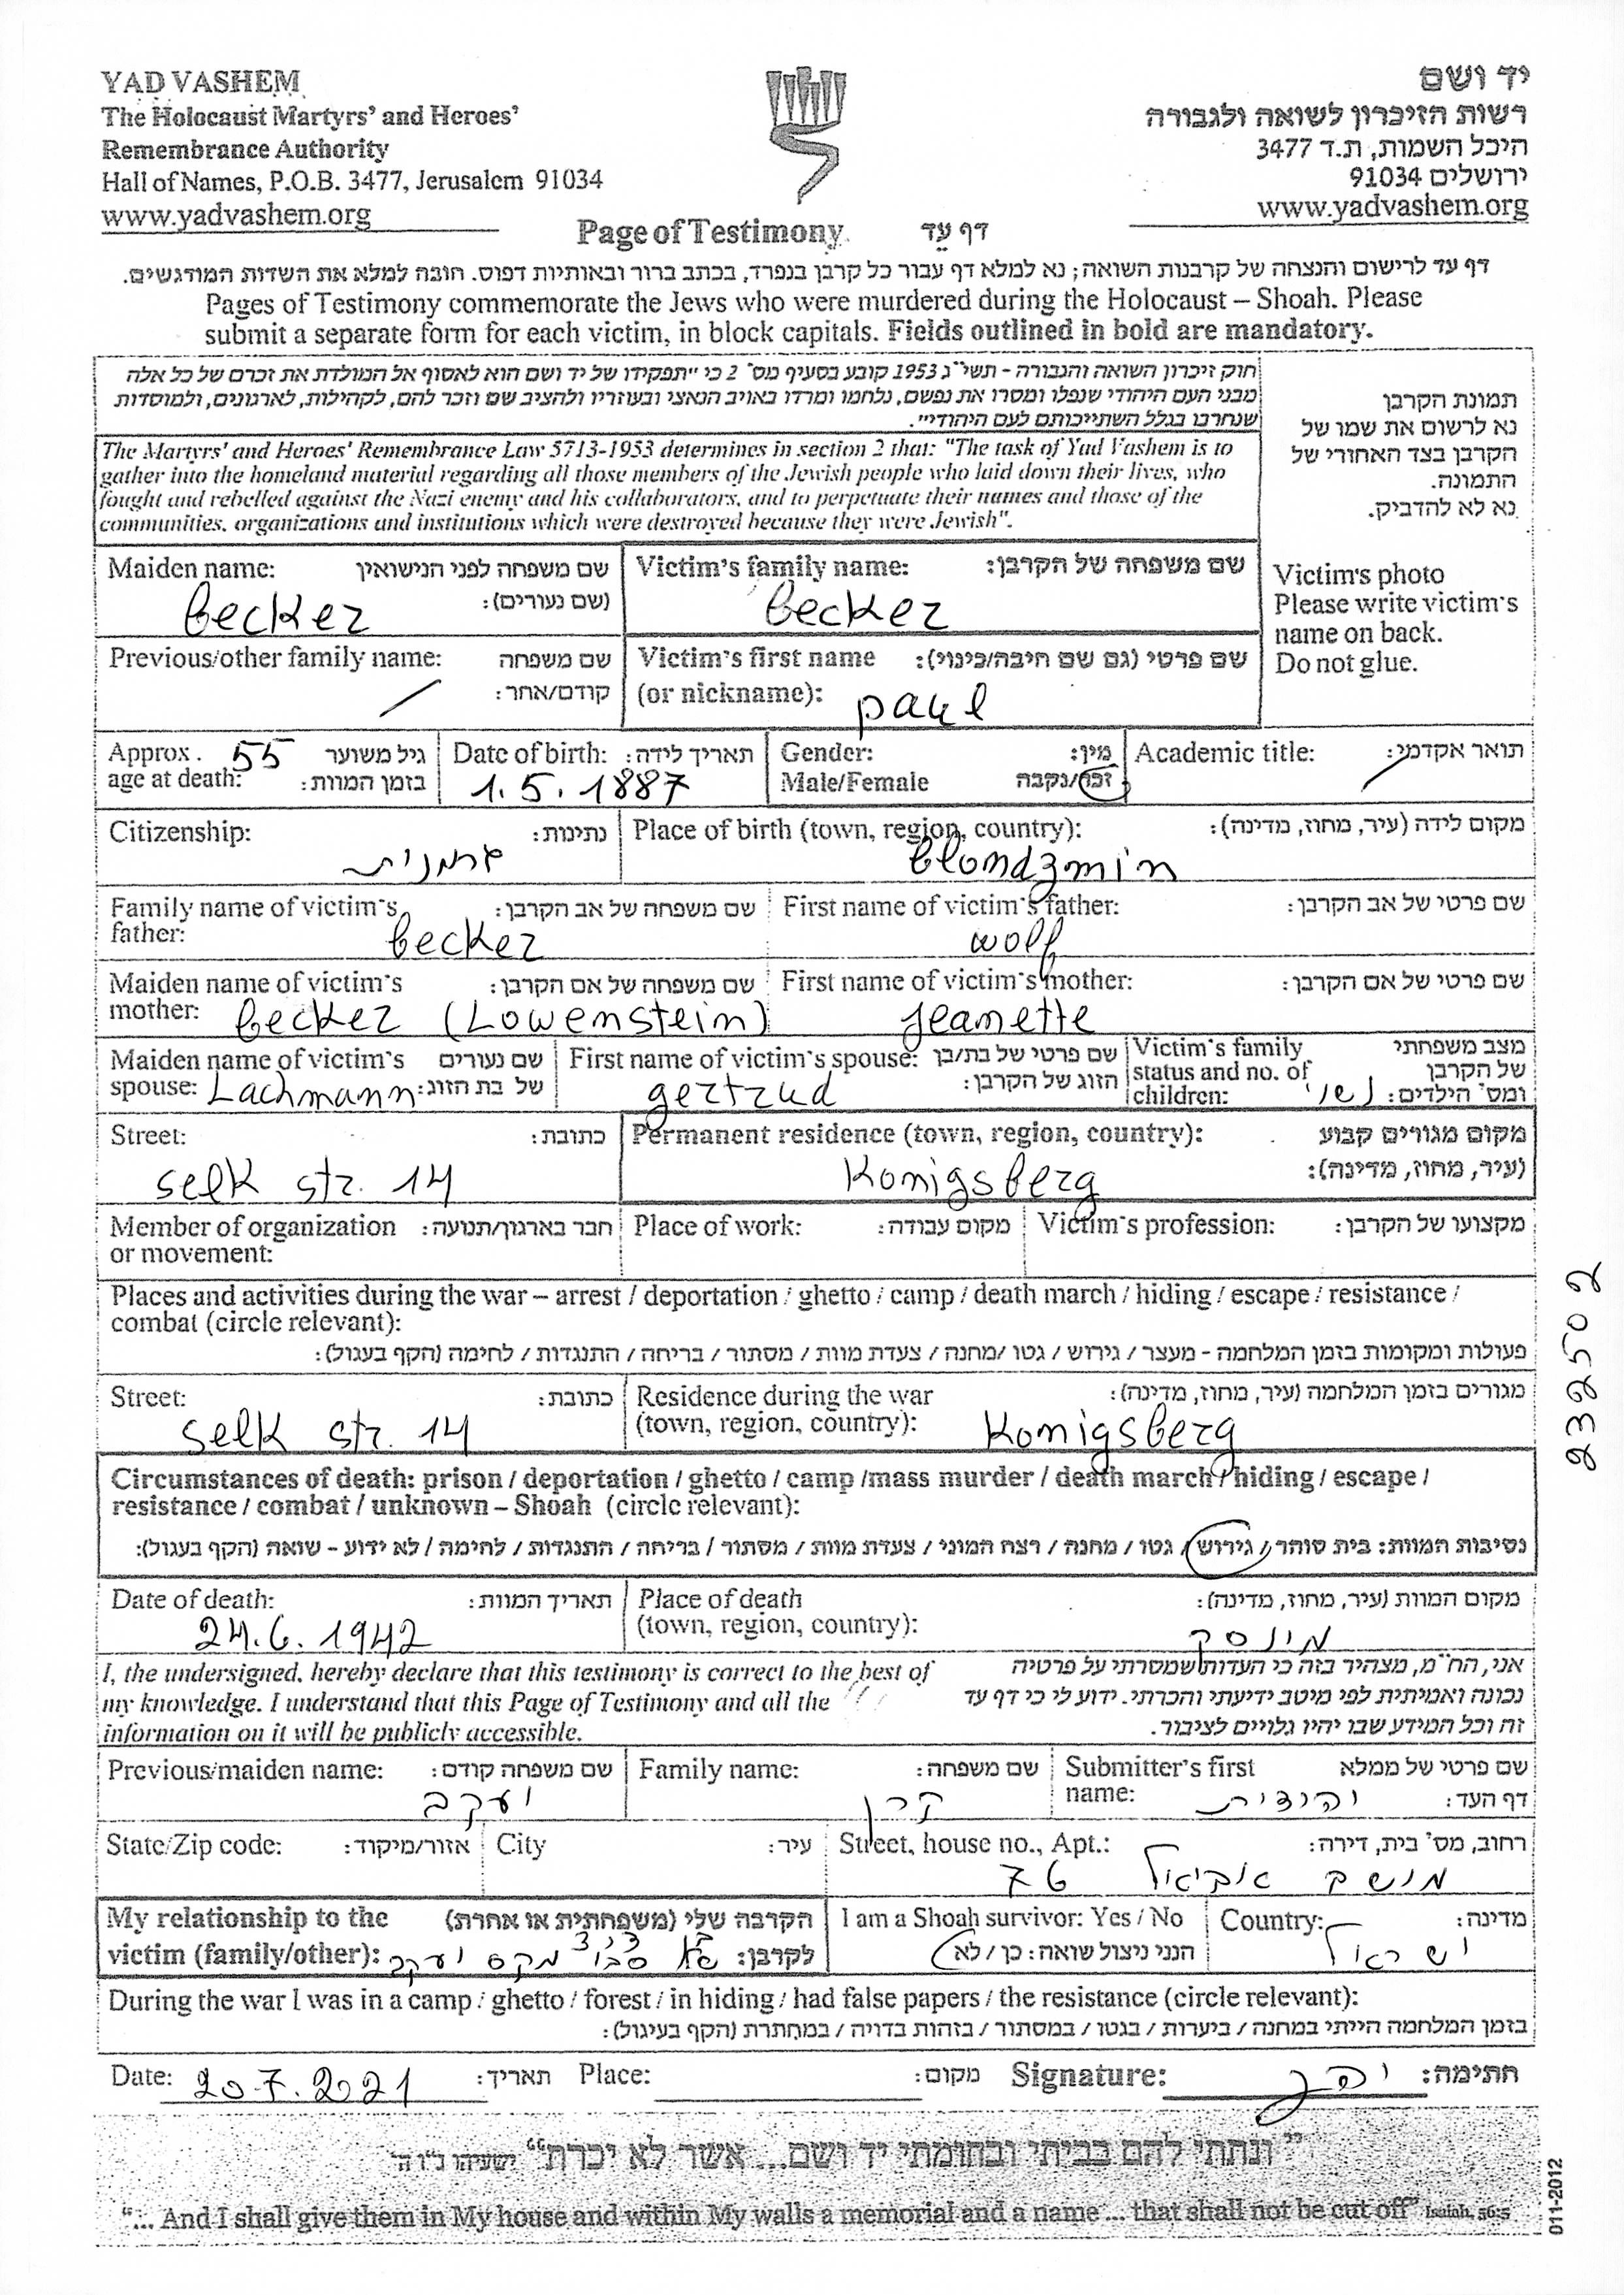 YAD VASHEM
The Holocaust Martyrs' and Heroes'
Remembrance Authority
Hall of Names, P.O.B. 3477, Jerusalem 91034
www.yadvashem.org
יד ושם
רשות הזיכרון לשואה ולגבורה
היכל השמות, ת.ד 3477
ירושלים 91034
www.yadvashem.org
Page of Testimony דף עֵד
דף עד לרישום והנצחה של קרבנות השואה; נא למלא דף עבור כל קרבן בנפרד, בכתב ברור ובאותיות דפוס. חובה למלא את השדות המודגשים.
Pages of Testimony commemorate the Jews who were murdered during the Holocaust – Shoah. Please
submit a separate form for each victim, in block capitals. Fields outlined in bold are mandatory.
חוק זיכרון השואה והגבורה - תשי"ג 1953 קובע בסעיף מס' 2 כי "תפקידו של יד ושם הוא לאסוף אל המולדת את זכרם של כל אלה
מבני העם היהודי שנפלו ומסרו את נפשם, נלחמו ומרדו באויב הנאצי ובעוזריו ולהציב שם וזכר להם, לקהילות, לארגונים, ולמוסדות
שנחרבו בגלל השתייכותם לעם היהודי".
The Martyrs' and Heroes' Remembrance Law 5713-1953 determines in section 2 that: "The task of Yad Vashem is to
gather into the homeland material regarding all those members of the Jewish people who laid down their lives, who
fought and rebelled against the Nazi enemy and his collaborators, and to perpetuate their names and those of the
communities, organizations and institutions which were destroyed because they were Jewish".
תמונת הקרבן
נא לרשום את שמו של
הקרבן בצד האחורי של
התמונה.
נא לא להדביק.
Victim's photo
Please write victim's
name on back.
Do not glue.
Maiden name: שם משפחה לפני הנישואין
(שם נעורים):
becker
Victim's family name: שם משפחה של הקרבן:
becker
Previous/other family name: שם משפחה
קודם/אחר:
Victim's first name שם פרטי (גם שם חיבה/כינוי):
(or nickname): paul
Approx. 55 גיל משוער
age at death: בזמן המוות:
Date of birth: תאריך לידה:
1.5.1887
Gender: מין:
Male/Female זכר/נקבה
Academic title: תואר אקדמי:
Citizenship: נתינות:
גרמנית
Place of birth (town, region, country): מקום לידה (עיר, מחוז, מדינה):
blondzmin
Family name of victim's שם משפחה של אב הקרבן:
father: becker
First name of victim's father: שם פרטי של אב הקרבן:
wolf
Maiden name of victim's שם משפחה של אם הקרבן:
mother: becker (Lowenstein)
First name of victim's mother: שם פרטי של אם הקרבן:
jeanette
Maiden name of victim's שם נעורים
spouse: Lachmann של בת הזוג:
First name of victim's spouse: שם פרטי של בת/בן
הזוג של הקרבן:
gertrud
Victim's family מצב משפחתי
status and no. of של הקרבן
children: נשוי ומס' הילדים:
Street: כתובת:
selk str. 14
Permanent residence (town, region, country): מקום מגורים קבוע
(עיר, מחוז, מדינה):
Konigsberg
Member of organization חבר בארגון/תנועה:
or movement:
Place of work: מקום עבודה:
Victim's profession: מקצועו של הקרבן:
Places and activities during the war – arrest / deportation / ghetto / camp / death march / hiding / escape / resistance /
combat (circle relevant):
פעולות ומקומות בזמן המלחמה - מעצר / גירוש / גטו /מחנה / צעדת מוות / מסתור / בריחה / התנגדות / לחימה (הקף בעגול):
Street: כתובת:
selk str. 14
Residence during the war מגורים בזמן המלחמה (עיר, מחוז, מדינה):
(town, region, country): Konigsberg
Circumstances of death: prison / deportation / ghetto / camp /mass murder / death march / hiding / escape /
resistance / combat / unknown – Shoah (circle relevant):
נסיבות המוות: בית סוהר / גירוש / גטו / מחנה / רצח המוני / צעדת מוות / מסתור / בריחה / התנגדות / לחימה / לא ידוע - שואה (הקף בעגול):
Date of death: תאריך המוות:
24.6.1942
Place of death מקום המוות (עיר, מחוז, מדינה):
(town, region, country):
מינסק
I, the undersigned, hereby declare that this testimony is correct to the best of
my knowledge. I understand that this Page of Testimony and all the
information on it will be publicly accessible.
אני, הח"מ, מצהיר בזה כי העדות שמסרתי על פרטיה
נכונה ואמיתית לפי מיטב ידיעתי והכרתי. ידוע לי כי דף עד
זה וכל המידע שבו יהיו גלויים לציבור.
Previous/maiden name: שם משפחה קודם:
יעקב
Family name: שם משפחה:
קרן
Submitter's first שם פרטי של ממלא
name: דף העד:
יהודית
State/Zip code: אזור/מיקוד:
City עיר:
Street, house no., Apt.: רחוב, מס' בית, דירה:
מושב אביאל 76
My relationship to the הקרבה שלי (משפחתית או אחרת)
victim (family/other): לקרבן:
סבי מקס יעקב
I am a Shoah survivor: Yes / No
הנני ניצול שואה: כן / לא
Country: מדינה:
ישראל
During the war I was in a camp / ghetto / forest / in hiding / had false papers / the resistance (circle relevant):
בזמן המלחמה הייתי במחנה / ביערות / בגטו / במסתור / בזהות בדויה / במחתרת (הקף בעיגול):
Date: 20.7.2021 תאריך: Place: מקום: Signature: חתימה:
"ונתתי להם בביתי ובחומתי יד ושם... אשר לא יכרת" ישעיהו נ"ו ה'
"... And I shall give them in My house and within My walls a memorial and a name ... that shall not be cut off" Isaiah, 56:5
011-2012
232502